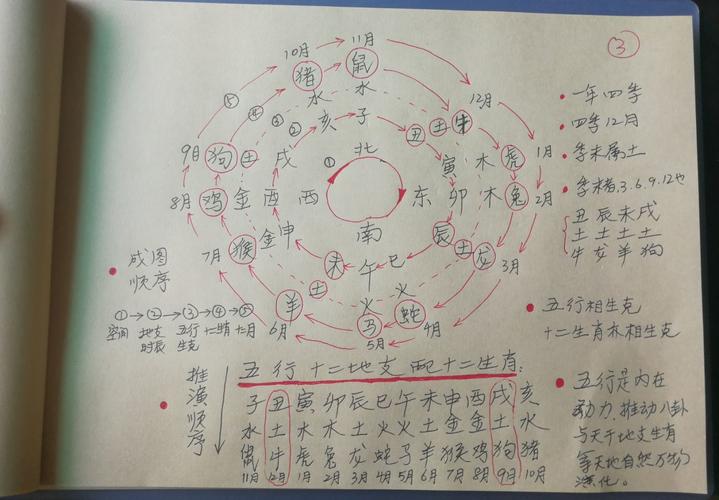 ③
10月 11月
猪 鼠
⑤ ④ 水 水 12月
③ ② 亥 子 丑 土 牛
9月 狗 土 戌 ① 北 寅 木 虎 1月
8月 鸡 金 酉 西 东 卯 木 兔 2月
7月 猴 金 申 南 辰 土 龙 3月
未 午 巳
羊 土 火 火
6月 马 蛇 4月
5月
• 一年四季
• 四季12月
• 季末属土
• 季末者,3.6.9.12也
丑 辰 未 戌
土 土 土 土
牛 龙 羊 狗
• 成图
顺序
①→②→③→④→⑤
空间 地支 五行 十二肖 十二月
时辰 生克
• 五行相生克
十二生肖亦相生克
• 推演顺序
五行十二地支配十二生肖:
子 丑 寅 卯 辰 巳 午 未 申 酉 戌 亥
水 土 木 木 土 火 火 土 金 金 土 水
鼠 牛 虎 兔 龙 蛇 马 羊 猴 鸡 狗 猪
11月 12月 1月 2月 3月 4月 5月 6月 7月 8月 9月 10月
• 五行是内在
动力,推动八卦
与天干地支生肖
等天地自然万物
演化。